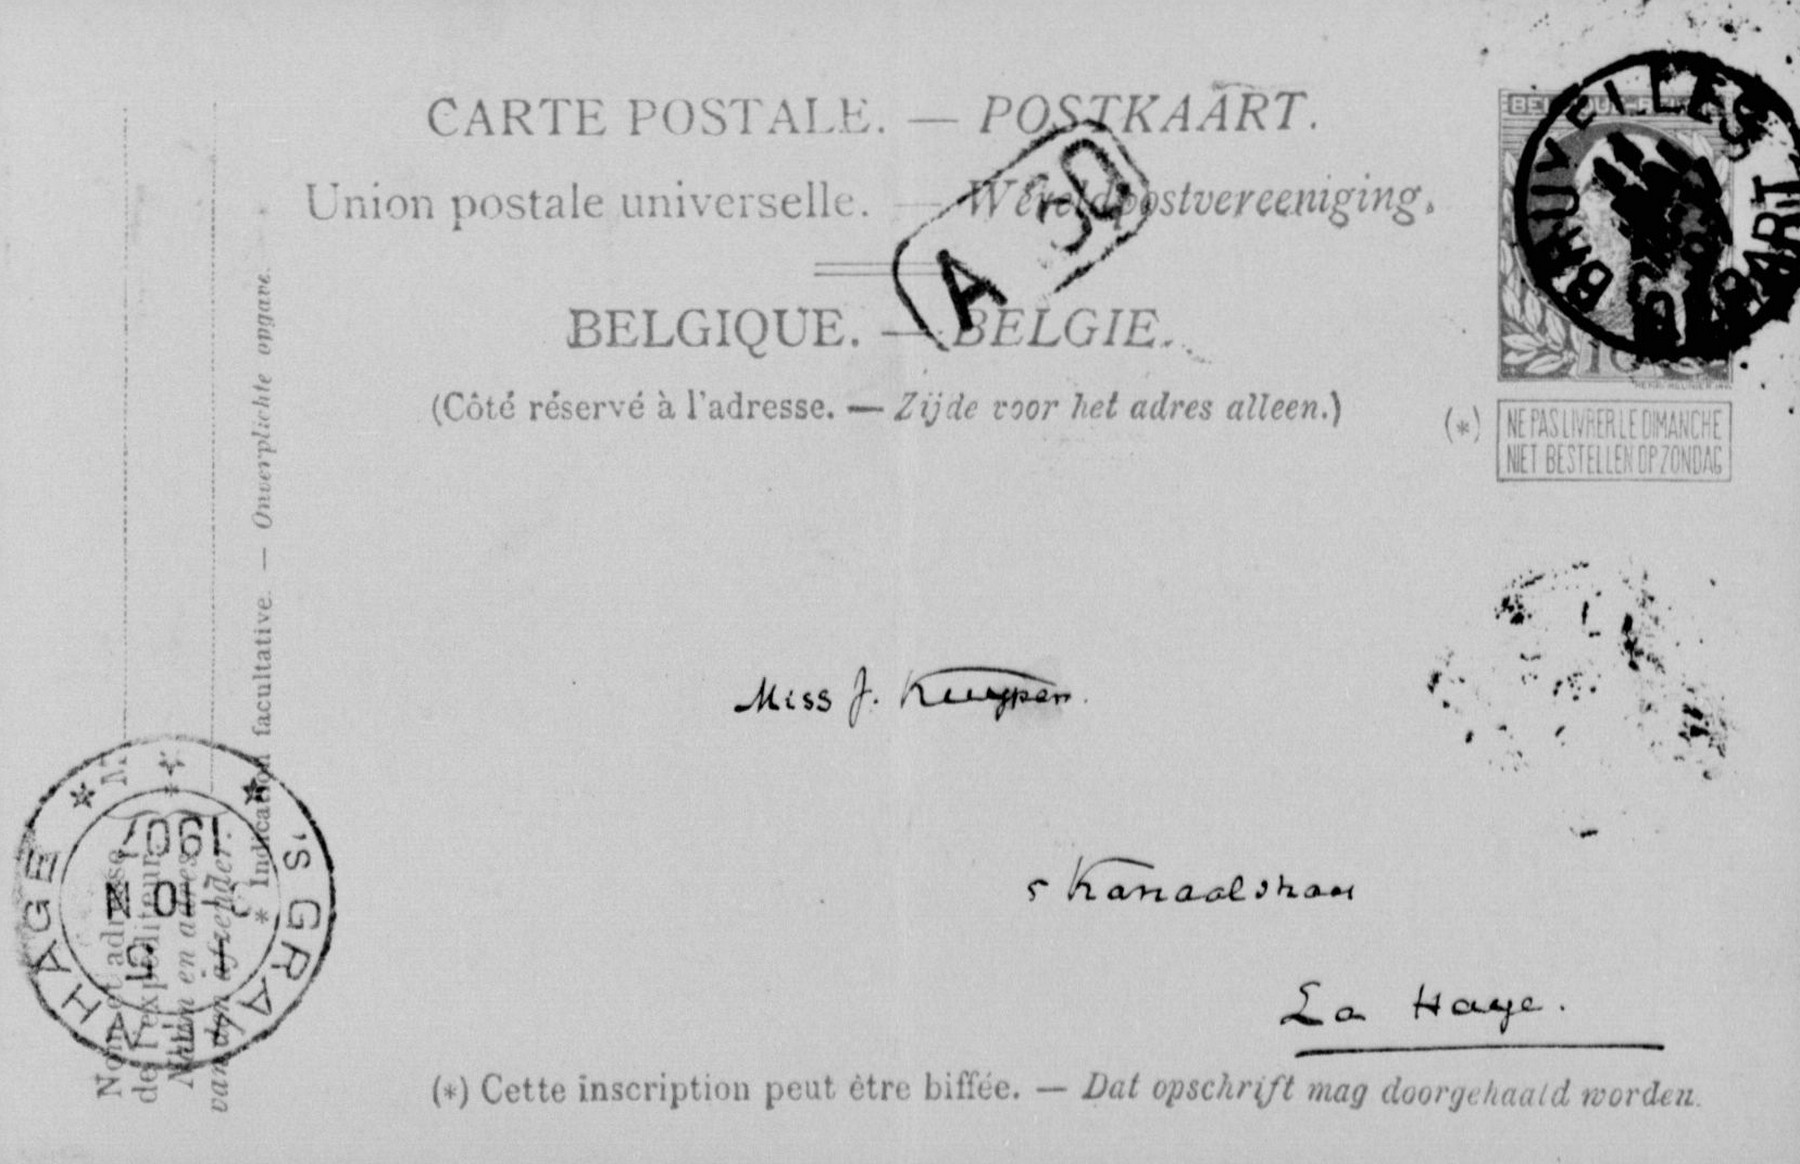 CARTE POSTALE. — POSTKAART.
Union postale universelle. — Wereldpostvereeniging.
A 30
BELGIQUE. — BELGIE.
(Côté réservé à l'adresse. — Zijde voor het adres alleen.)
BRUXELLES
DÉPART
10
(*) NE PAS LIVRER LE DIMANCHE
NIET BESTELLEN OP ZONDAG
Miss J. Kuyper.
5 Kanaalstraat
La Haye.
(*) Cette inscription peut être biffée. — Dat opschrift mag doorgehaald worden.
* Indication facultative. — Onverplichte opgave.
M
Nom et adresse
de l'expéditeur.
Naam en adres
van den afzender.
'S GRAVENHAGE
1907